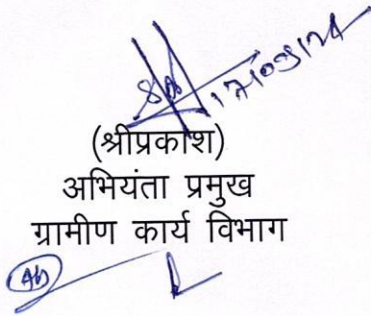 17/09/24
(श्रीप्रकाश)
अभियंता प्रमुख
ग्रामीण कार्य विभाग